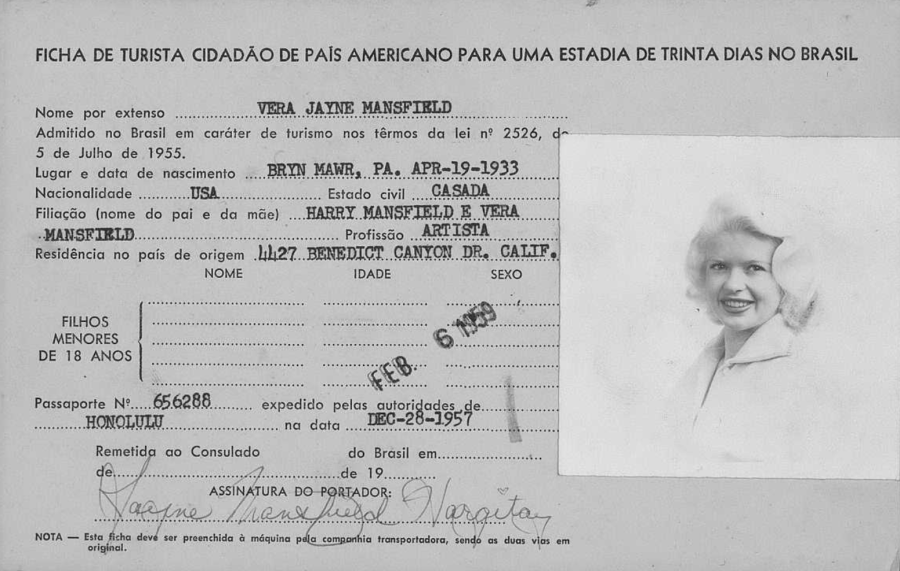 FICHA DE TURISTA CIDADÃO DE PAÍS AMERICANO PARA UMA ESTADIA DE TRINTA DIAS NO BRASIL
Nome por extenso VERA JAYNE MANSFIELD
Admitido no Brasil em caráter de turismo nos têrmos da lei nº 2526, de
5 de Julho de 1955.
Lugar e data de nascimento BRYN MAWR, PA. APR-19-1933
Nacionalidade USA Estado civil CASADA
Filiação (nome do pai e da mãe) HARRY MANSFIELD E VERA
MANSFIELD Profissão ARTISTA
Residência no país de origem 4427 BENEDICT CANYON DR. CALIF.
NOME IDADE SEXO
FILHOS
MENORES
DE 18 ANOS
FEB. 6 1959
Passaporte Nº 656288 expedido pelas autoridades de
HONOLULU na data DEC-28-1957
Remetida ao Consulado do Brasil em
de de 19
ASSINATURA DO PORTADOR:
Jayne Mansfield Hargitay
NOTA — Esta ficha deve ser preenchida à máquina pela companhia transportadora, sendo as duas vias em
original.